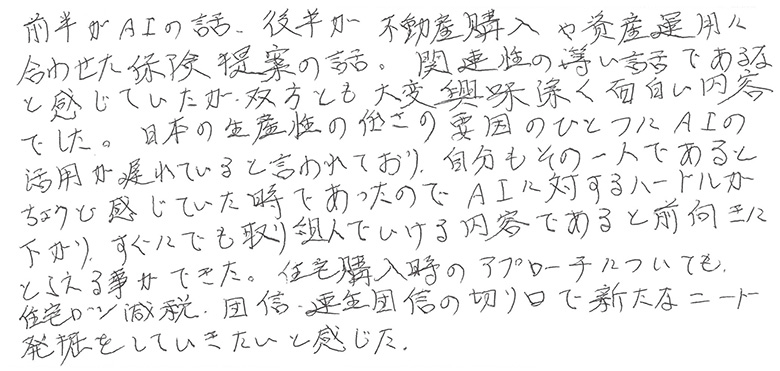 前半がAIの話、後半が不動産購入や資産運用に
合わせた保険提案の話。関連性の薄い話であるな
と感じていたが、双方とも大変興味深く面白い内容
でした。日本の生産性の低さの要因のひとつにAIの
活用が遅れていると言われており、自分もその一人であると
ちょうど感じていた時であったのでAIに対するハードルが
下がり、すぐにでも取り組んでいける内容であると前向きに
とらえる事ができた。住宅購入時のアプローチについても、
住宅ローン減税、団信・連生団信の切り口で新たなニード
発掘をしていきたいと感じた。